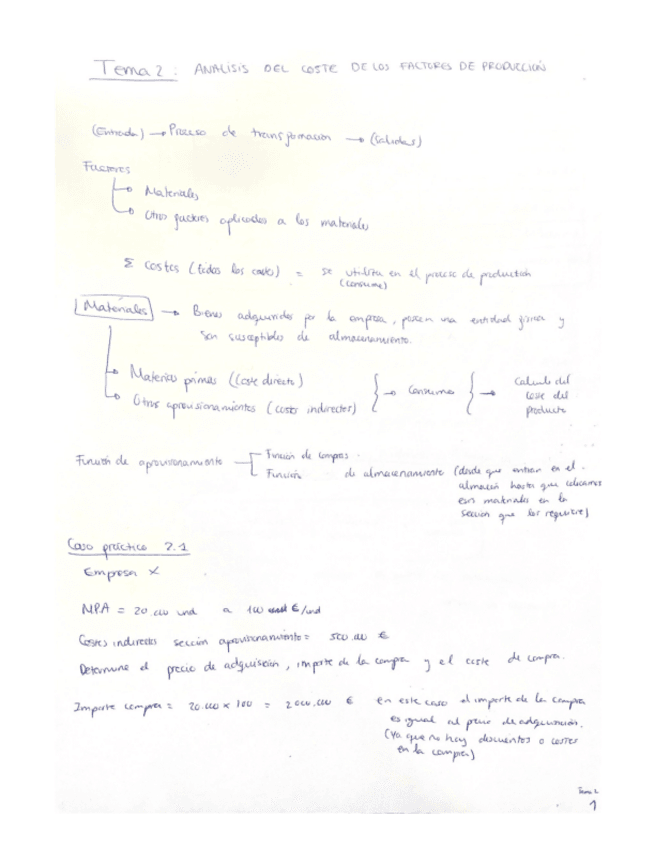 Tema 2: ANALISIS DEL COSTE DE LOS FACTORES DE PRODUCCIÓN
(Entrada) → Proceso de transformación → (Salidas)
Factores
→ Materiales
→ Otros factores aplicados a los materiales
Σ Costes (todos los costes) = se utiliza en el proceso de production
(consume)
Materiales → Bienes adquiridos por la empresa, poseen una entidad física y
son susceptibles de almacenamiento.
→ Materias primas (Coste directo)
→ Otros aprovisionamientos (costes indirectos)
→ Consumo → Calculo del
coste del
producto
Función de aprovisionamiento
Función de compras.
Función de almacenamiento (desde que entran en el
almacén hasta que colocamos
esos materiales en la
sección que los requiere)
Caso práctico 2.1
Empresa X
MPA = 20.000 und a 100 €/und
Costes indirectos sección aprovisionamiento = 500.000 €
Determine el precio de adquisición, importe de la compra y el coste de compra.
Importe compra = 20.000 x 100 = 2.000.000 € en este caso el importe de la compra
es igual al precio de adquisición.
(Ya que no hay descuentos o costes
en la compra)
Tema 2
1